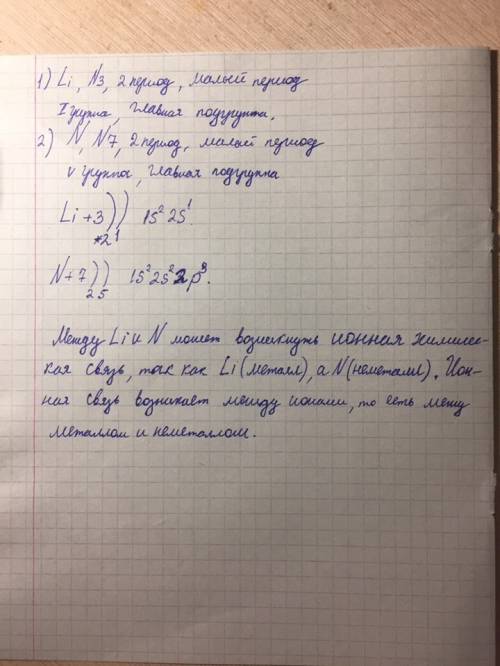 1) Li, N3, 2 период, малый период
I группа, главная подгруппа.
2) N, N7, 2 период, малый период
V группа, главная подгруппа
Li +3)) 1s² 2s¹.
2 1
N +7)) 1s² 2s² 2p³.
2 5
Между Li и N может возникнуть ионная химичес-
кая связь, так как Li (металл), а N (неметалл). Ион-
ная связь возникает между ионами, то есть между
металлом и неметаллом.